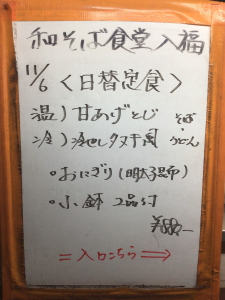 和そば食堂入福
11/6 <日替定食>
温)甘あげとじ そば・
冷)冷やしタヌキ風 うどん
。おにぎり(明太昆布)
。小鉢 2品付
¥880-
=入口こちら⇒